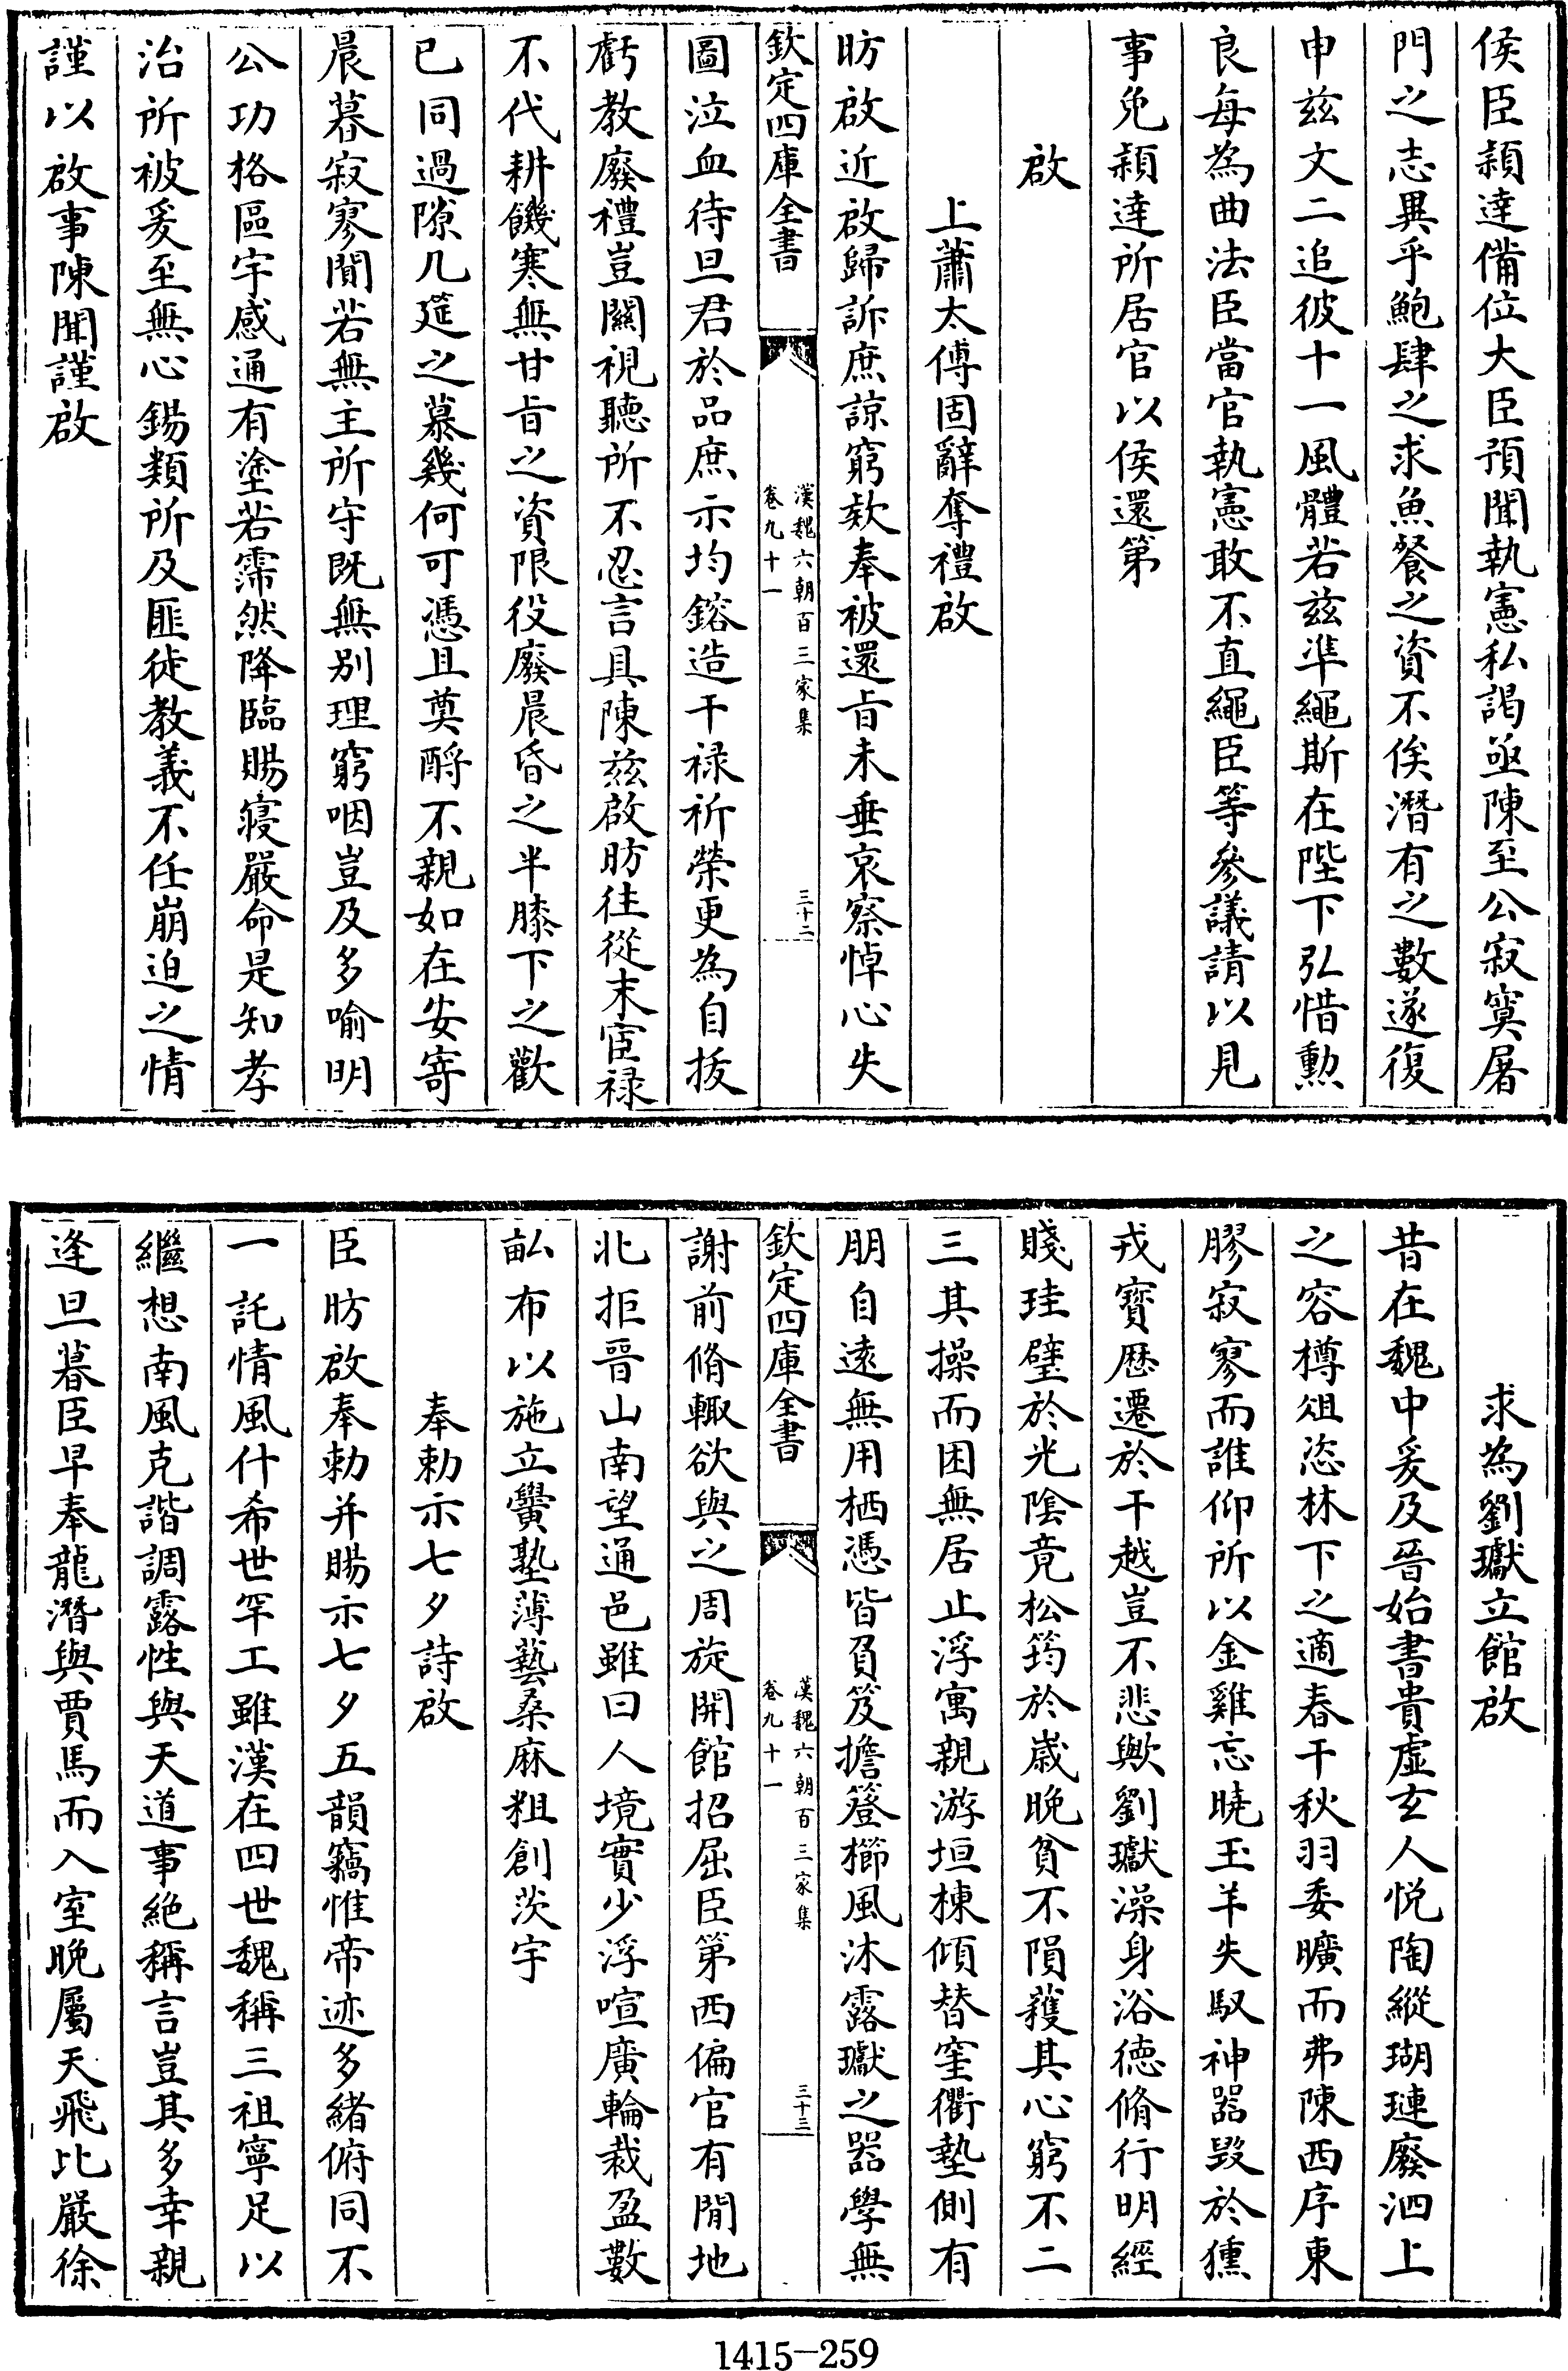 侯臣穎達備位大臣預聞執憲私謁亟陳至公寂寞屠
門之志異乎鮑肆之求魚餐之資不俟潛有之數遂復
申茲文二追彼十一風體若茲準繩斯在陛下弘惜勲
良每為曲法臣當官執憲敢不直繩臣等參議請以見
事免穎達所居官以侯還第
啟
上蕭太傅固辭奪禮啟
昉啟近啟歸訴庶諒窮欵奉被還㫖未垂哀察悼心失
欽定四庫全書
漢魏六朝百三家集
卷九十一
三十二
圖泣血待旦君於品庶示均鎔造干禄祈榮更為自拔
虧教廢禮豈關視聽所不忍言具陳茲啟昉往從末宦禄
不代耕饑寒無甘㫖之資限役廢晨昏之半膝下之歡
已同過隙几筵之慕幾何可憑且奠酹不親如在安寄
晨暮寂寥閴若無主所守既無别理窮咽豈及多喻明
公功格區宇感通有塗若霈然降臨賜寢嚴命是知孝
治所被爰至無心錫類所及匪徒教義不任崩迫之情
謹以啟事陳聞謹啟
求為劉瓛立館啟
昔在魏中爰及晉始書貴虛玄人悦陶縱瑚璉廢泗上
之容樽俎恣林下之適春干秋羽委曠而弗陳西序東
膠寂寥而誰仰所以金雞忘曉玉羊失馭神器毁於獯
戎寶歴遷於干越豈不悲歟劉瓛澡身浴徳脩行明經
賤珪璧於光陰竟松筠於歳晩貧不隕穫其心窮不二
三其操而困無居止浮寓親游垣棟傾替窐衢墊側有
朋自遠無用栖憑皆負笈擔簦櫛風沐露瓛之器學無
欽定四庫全書
漢魏六朝百三家集
卷九十一
三十三
謝前脩輙欲與之周旋開館招屈臣第西偏官有閒地
北拒晉山南望通邑雖曰人境實少浮喧廣輪裁盈數
畝布以施立黌塾薄藝桑麻粗創茨宇
奉勅示七夕詩啟
臣昉啟奉勅并賜示七夕五韻竊惟帝迹多緒俯同不
一託情風什希世罕工雖漢在四世魏稱三祖寧足以
繼想南風克諧調露性與天道事絶稱言豈其多幸親
逢旦暮臣早奉龍潛與賈馬而入室晚屬天飛比嚴徐
1415—259